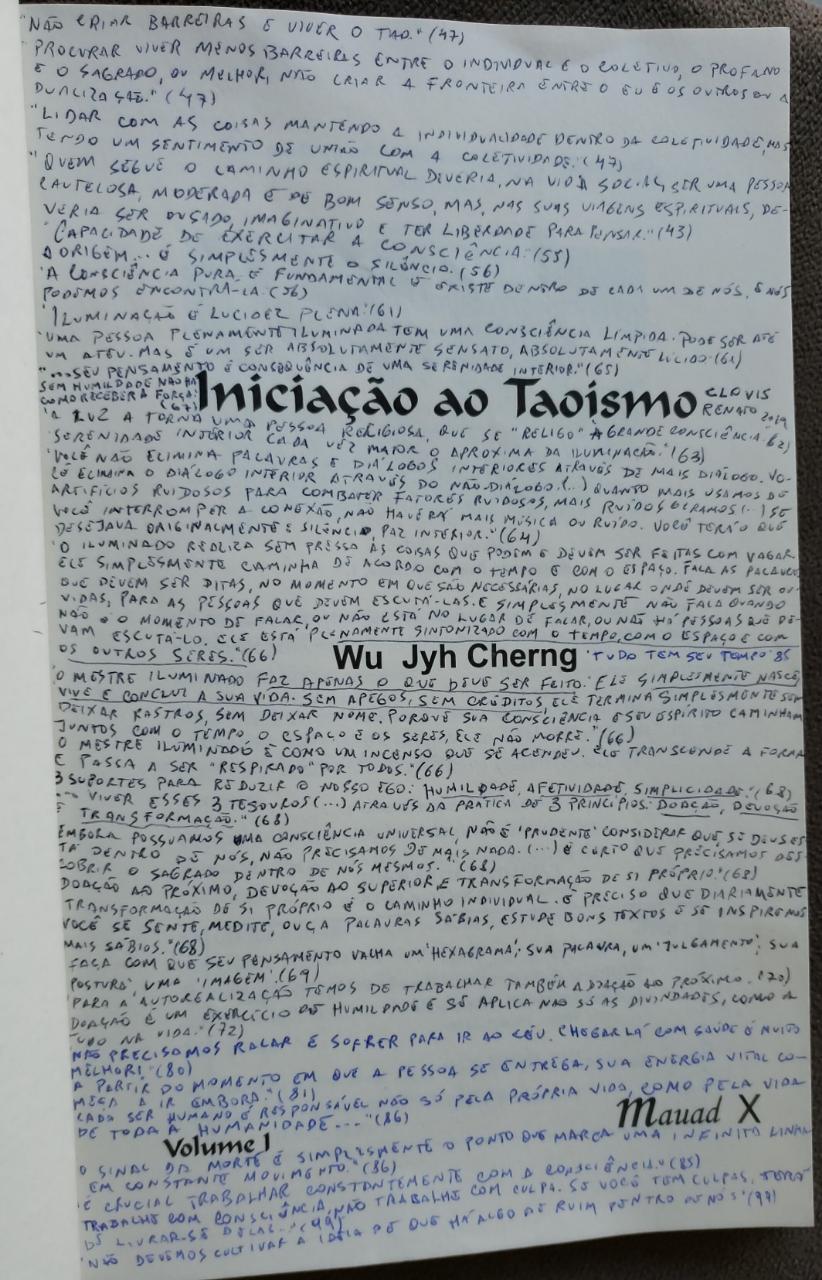 "NÃO CRIAR BARREIRAS E VIVER O TAO." (47)
PROCURAR VIVER MENOS BARREIRAS ENTRE O INDIVIDUAL E O COLETIVO, O PROFANO
E O SAGRADO, OU MELHOR, NÃO CRIAR A FRONTEIRA ENTRE O EU E OS OUTROS OU A
DUALIZAÇÃO." (47)
"LIDAR COM AS COISAS MANTENDO A INDIVIDUALIDADE DENTRO DA COLETIVIDADE, MAS
TENDO UM SENTIMENTO DE UNIÃO COM A COLETIVIDADE." (47)
"QUEM SEGUE O CAMINHO ESPIRITUAL DEVERIA, NA VIDA SOCIAL, SER UMA PESSOA
CAUTELOSA, MODERADA E DE BOM SENSO, MAS, NAS SUAS VIAGENS ESPIRITUAIS, DE-
VERIA SER OUSADO, IMAGINATIVO E TER LIBERDADE PARA PENSAR." (43)
"CAPACIDADE DE EXERCITAR A CONSCIÊNCIA." (55)
A ORIGEM... É SIMPLESMENTE O SILÊNCIO. (56)
"A CONSCIÊNCIA PURA, É FUNDAMENTAL E EXISTE DENTRO DE CADA UM DE NÓS, E NÓS
PODEMOS ENCONTRÁ-LA. (56)
"ILUMINAÇÃO É LUCIDEZ PLENA." (61)
"UMA PESSOA PLENAMENTE ILUMINADA TEM UMA CONSCIÊNCIA LÍMPIDA. PODE SER ATÉ
UM ATEU. MAS É UM SER ABSOLUTAMENTE SENSATO, ABSOLUTAMENTE LÚCIDO. (61)
"...SEU PENSAMENTO É CONSEQUÊNCIA DE UMA SERENIDADE INTERIOR." (65)
SEM HUMILDADE NÃO HÁ
COMO RECEBER A FORÇA.
(67)
Iniciação ao Taoismo
CLOVIS
RENATO 2019
"A LUZ A TORNA UMA PESSOA RELIGIOSA, QUE SE "RELIGO" À GRANDE CONSCIÊNCIA. (62)
"SERENIDADE INTERIOR CADA VEZ MAIOR O APROXIMA DA ILUMINAÇÃO." (63)
"VOCÊ NÃO ELIMINA PALAVRAS E DIÁLOGOS INTERIORES ATRAVÉS DE MAIS DIÁLOGO. VO-
CÊ ELIMINA O DIÁLOGO INTERIOR ATRAVÉS DO NÃO-DIÁLOGO. (...) QUANTO MAIS USAMOS DE
ARTIFÍCIOS RUIDOSOS PARA COMBATER FATORES RUIDOSOS, MAIS RUÍDOS GERAMOS (...) SE
VOCÊ INTERROMPER A CONEXÃO, NÃO HAVERÁ MAIS MÚSICA OU RUÍDO. VOCÊ TERÁ O QUE
DESEJAVA ORIGINALMENTE: SILÊNCIO, PAZ INTERIOR." (64)
"O ILUMINADO REALIZA SEM PRESSA AS COISAS QUE PODEM E DEVEM SER FEITAS COM VAGAR.
ELE SIMPLESMENTE CAMINHA DE ACORDO COM O TEMPO E COM O ESPAÇO. FALA AS PALAVRAS
QUE DEVEM SER DITAS, NO MOMENTO EM QUE SÃO NECESSÁRIAS, NO LUGAR ONDE DEVEM SER OU-
VIDAS, PARA AS PESSOAS QUE DEVEM ESCUTÁ-LAS. E SIMPLESMENTE NÃO FALA QUANDO
NÃO É O MOMENTO DE FALAR, OU NÃO ESTÁ NO LUGAR DE FALAR, OU NÃO HÁ PESSOAS QUE DE-
VAM ESCUTÁ-LO. ELE ESTÁ PLENAMENTE SINTONIZADO COM O TEMPO, COM O ESPAÇO E COM
OS OUTROS SERES." (66)
Wu Jyh Cherng
"TUDO TEM SEU TEMPO" 85
"O MESTRE ILUMINADO FAZ APENAS O QUE DEVE SER FEITO. ELE SIMPLESMENTE NASCE,
VIVE E CONCLUI A SUA VIDA. SEM APEGOS, SEM CRÉDITOS, ELE TERMINA SIMPLESMENTE SEM
DEIXAR RASTROS, SEM DEIXAR NOME. PORQUE SUA CONSCIÊNCIA E SEU ESPÍRITO CAMINHAM
JUNTOS COM O TEMPO, O ESPAÇO E OS SERES, ELE NÃO MORRE." (66)
O MESTRE ILUMINADO É COMO UM INCENSO QUE SE ACENDEU. ELE TRANSCENDE A FORMA
E PASSA A SER "RESPIRADO" POR TODOS." (66)
3 SUPORTES PARA REDUZIR O NOSSO EGO: HUMILDADE, AFETIVIDADE, SIMPLICIDADE." (68)
... VIVER ESSES 3 TESOUROS (...) ATRAVÉS DA PRÁTICA DE 3 PRINCÍPIOS: DOAÇÃO, DEVOÇÃO
E TRANSFORMAÇÃO." (68)
EMBORA POSSUAMOS UMA CONSCIÊNCIA UNIVERSAL, NÃO É 'PRUDENTE' CONSIDERAR QUE, SE DEUS ES-
TÁ DENTRO DE NÓS, NÃO PRECISAMOS DE MAIS NADA. (...) É CERTO QUE PRECISAMOS DES-
COBRIR O SAGRADO DENTRO DE NÓS MESMOS." (68)
DOAÇÃO AO PRÓXIMO, DEVOÇÃO AO SUPERIOR E TRANSFORMAÇÃO DE SI PRÓPRIO." (68)
TRANSFORMAÇÃO DE SI PRÓPRIO É O CAMINHO INDIVIDUAL. É PRECISO QUE DIARIAMENTE
VOCÊ SE SENTE, MEDITE, OUÇA PALAVRAS SÁBIAS, ESTUDE BONS TEXTOS E SE INSPIRE NOS
MAIS SÁBIOS." (68)
FAÇA COM QUE SEU PENSAMENTO VALHA UM 'HEXAGRAMA'; SUA PALAVRA, UM 'JULGAMENTO'; SUA
POSTURA UMA 'IMAGEM'. (69)
"PARA A AUTOREALIZAÇÃO TEMOS DE TRABALHAR TAMBÉM A DOAÇÃO AO PRÓXIMO. (70)
DOAÇÃO É UM EXERCÍCIO DE HUMILDADE E SE APLICA NÃO SÓ AS DIVINDADES, COMO A
TUDO NA VIDA." (72)
"NÃO PRECISAMOS RALAR E SOFRER PARA IR AO CÉU. CHEGAR LÁ COM SAÚDE É MUITO
MELHOR!" (80)
A PARTIR DO MOMENTO EM QUE A PESSOA SE ENTREGA, SUA ENERGIA VITAL CO-
MEÇA A IR EMBORA." (81)
CADA SER HUMANO É RESPONSÁVEL NÃO SÓ PELA PRÓPRIA VIDA, COMO PELA VIDA
DE TODA A HUMANIDADE..." (86)
Mauad X
Volume I
O SINAL DA MORTE É SIMPLESMENTE O PONTO QUE MARCA UMA INFINITA LINHA
EM CONSTANTE MOVIMENTO." (86)
"É CRUCIAL TRABALHAR CONSTANTEMENTE COM A CONSCIÊNCIA." (85)
TRABALHE COM CONSCIÊNCIA, NÃO TRABALHE COM CULPA. SE VOCÊ TEM CULPAS, TERÁ
DE LIVRAR-SE DELAS..." (99)
"NÃO DEVEMOS CULTIVAR A IDEIA DE QUE HÁ ALGO DE RUIM DENTRO DE NÓS" (99)